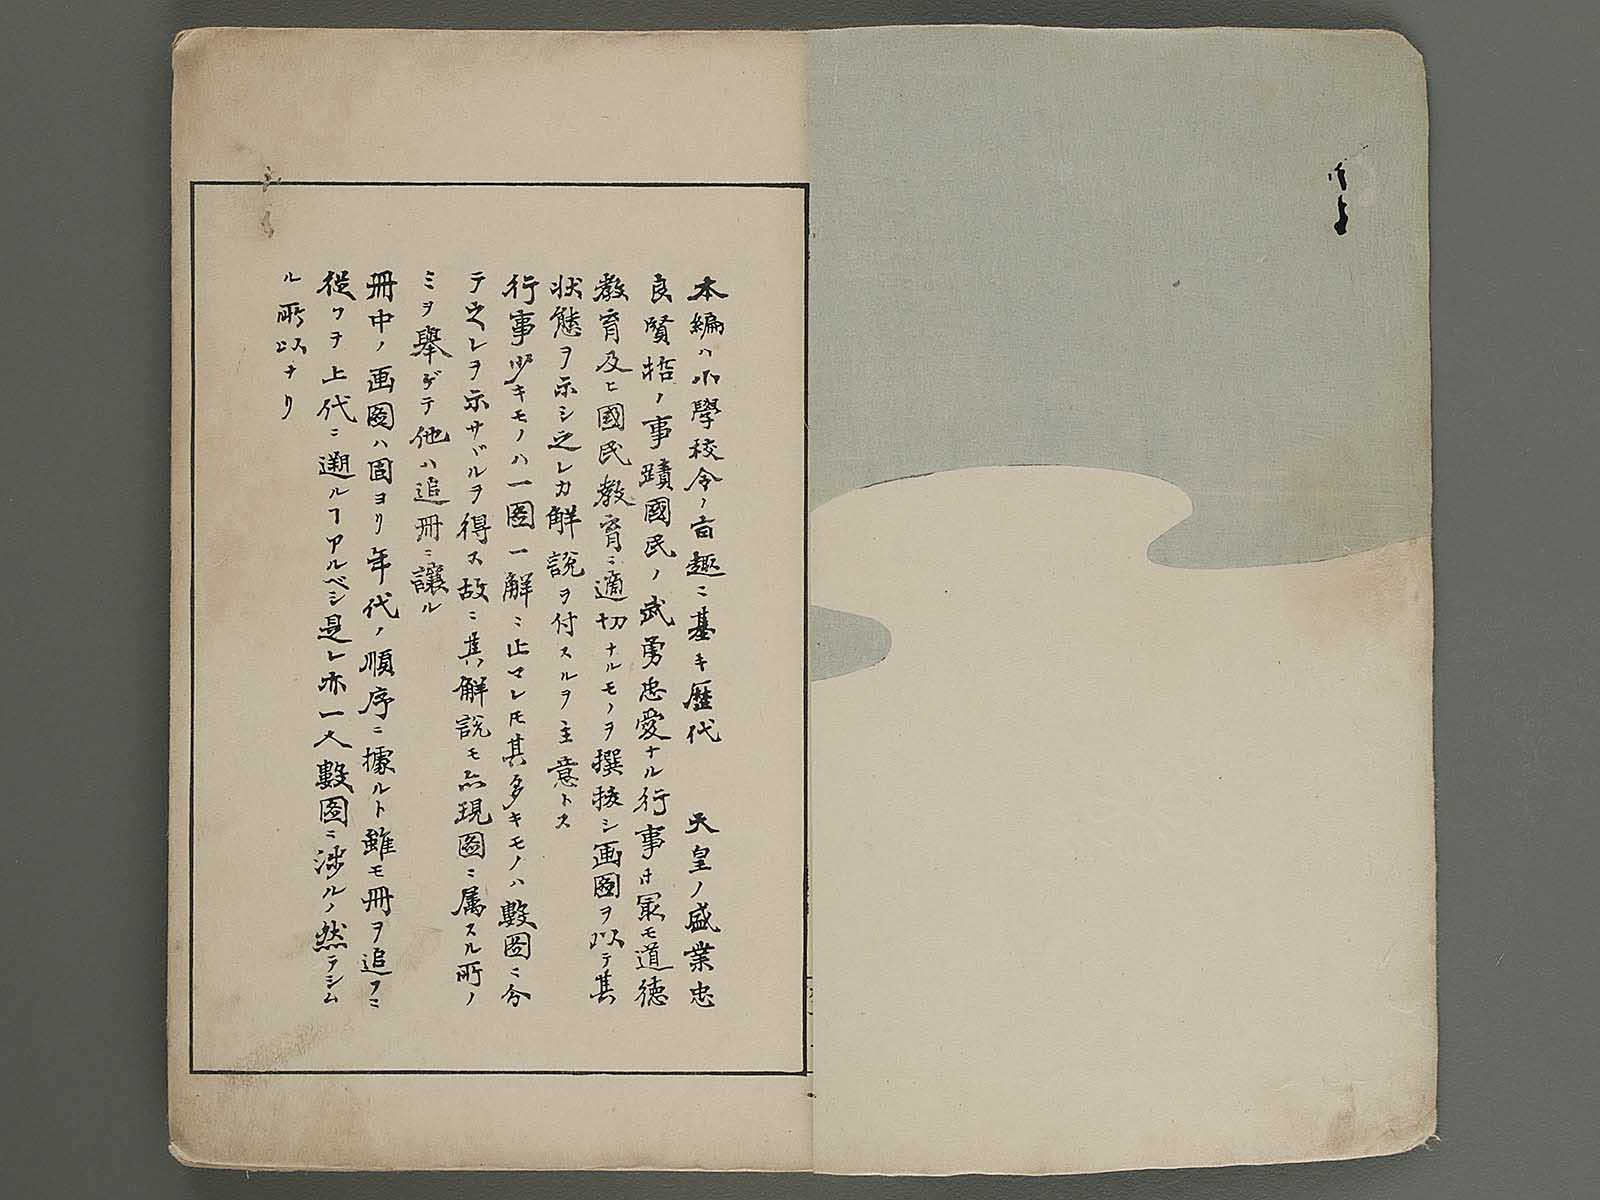 本編ハ小學校令ノ旨趣ニ基キ歷代　天皇ノ盛業忠
良賢哲ノ事蹟國民ノ武勇忠愛ナル行事中最モ道德
教育及ヒ國民教育ニ適切ナルモノヲ撰拔シ画圖ヲ以テ其
狀態ヲ示シ之レカ解說ヲ付スルヲ主意トス
行事少キモノハ一圖一解ニ止マレ𪜈其多キモノハ數圖ニ分
テ之レヲ示サヾルヲ得ス故ニ其解說モ亦現圖ニ属スル所ノ
ミヲ舉ゲテ他ハ追冊ニ讓ル
冊中ノ画圖ハ固ヨリ年代ノ順序ニ據ルト雖モ冊ヲ追フニ
從フテ上代ニ遡ルヿアルベシ是レ亦一人數圖ニ涉ルノ然ラシム
ル所以ナリ